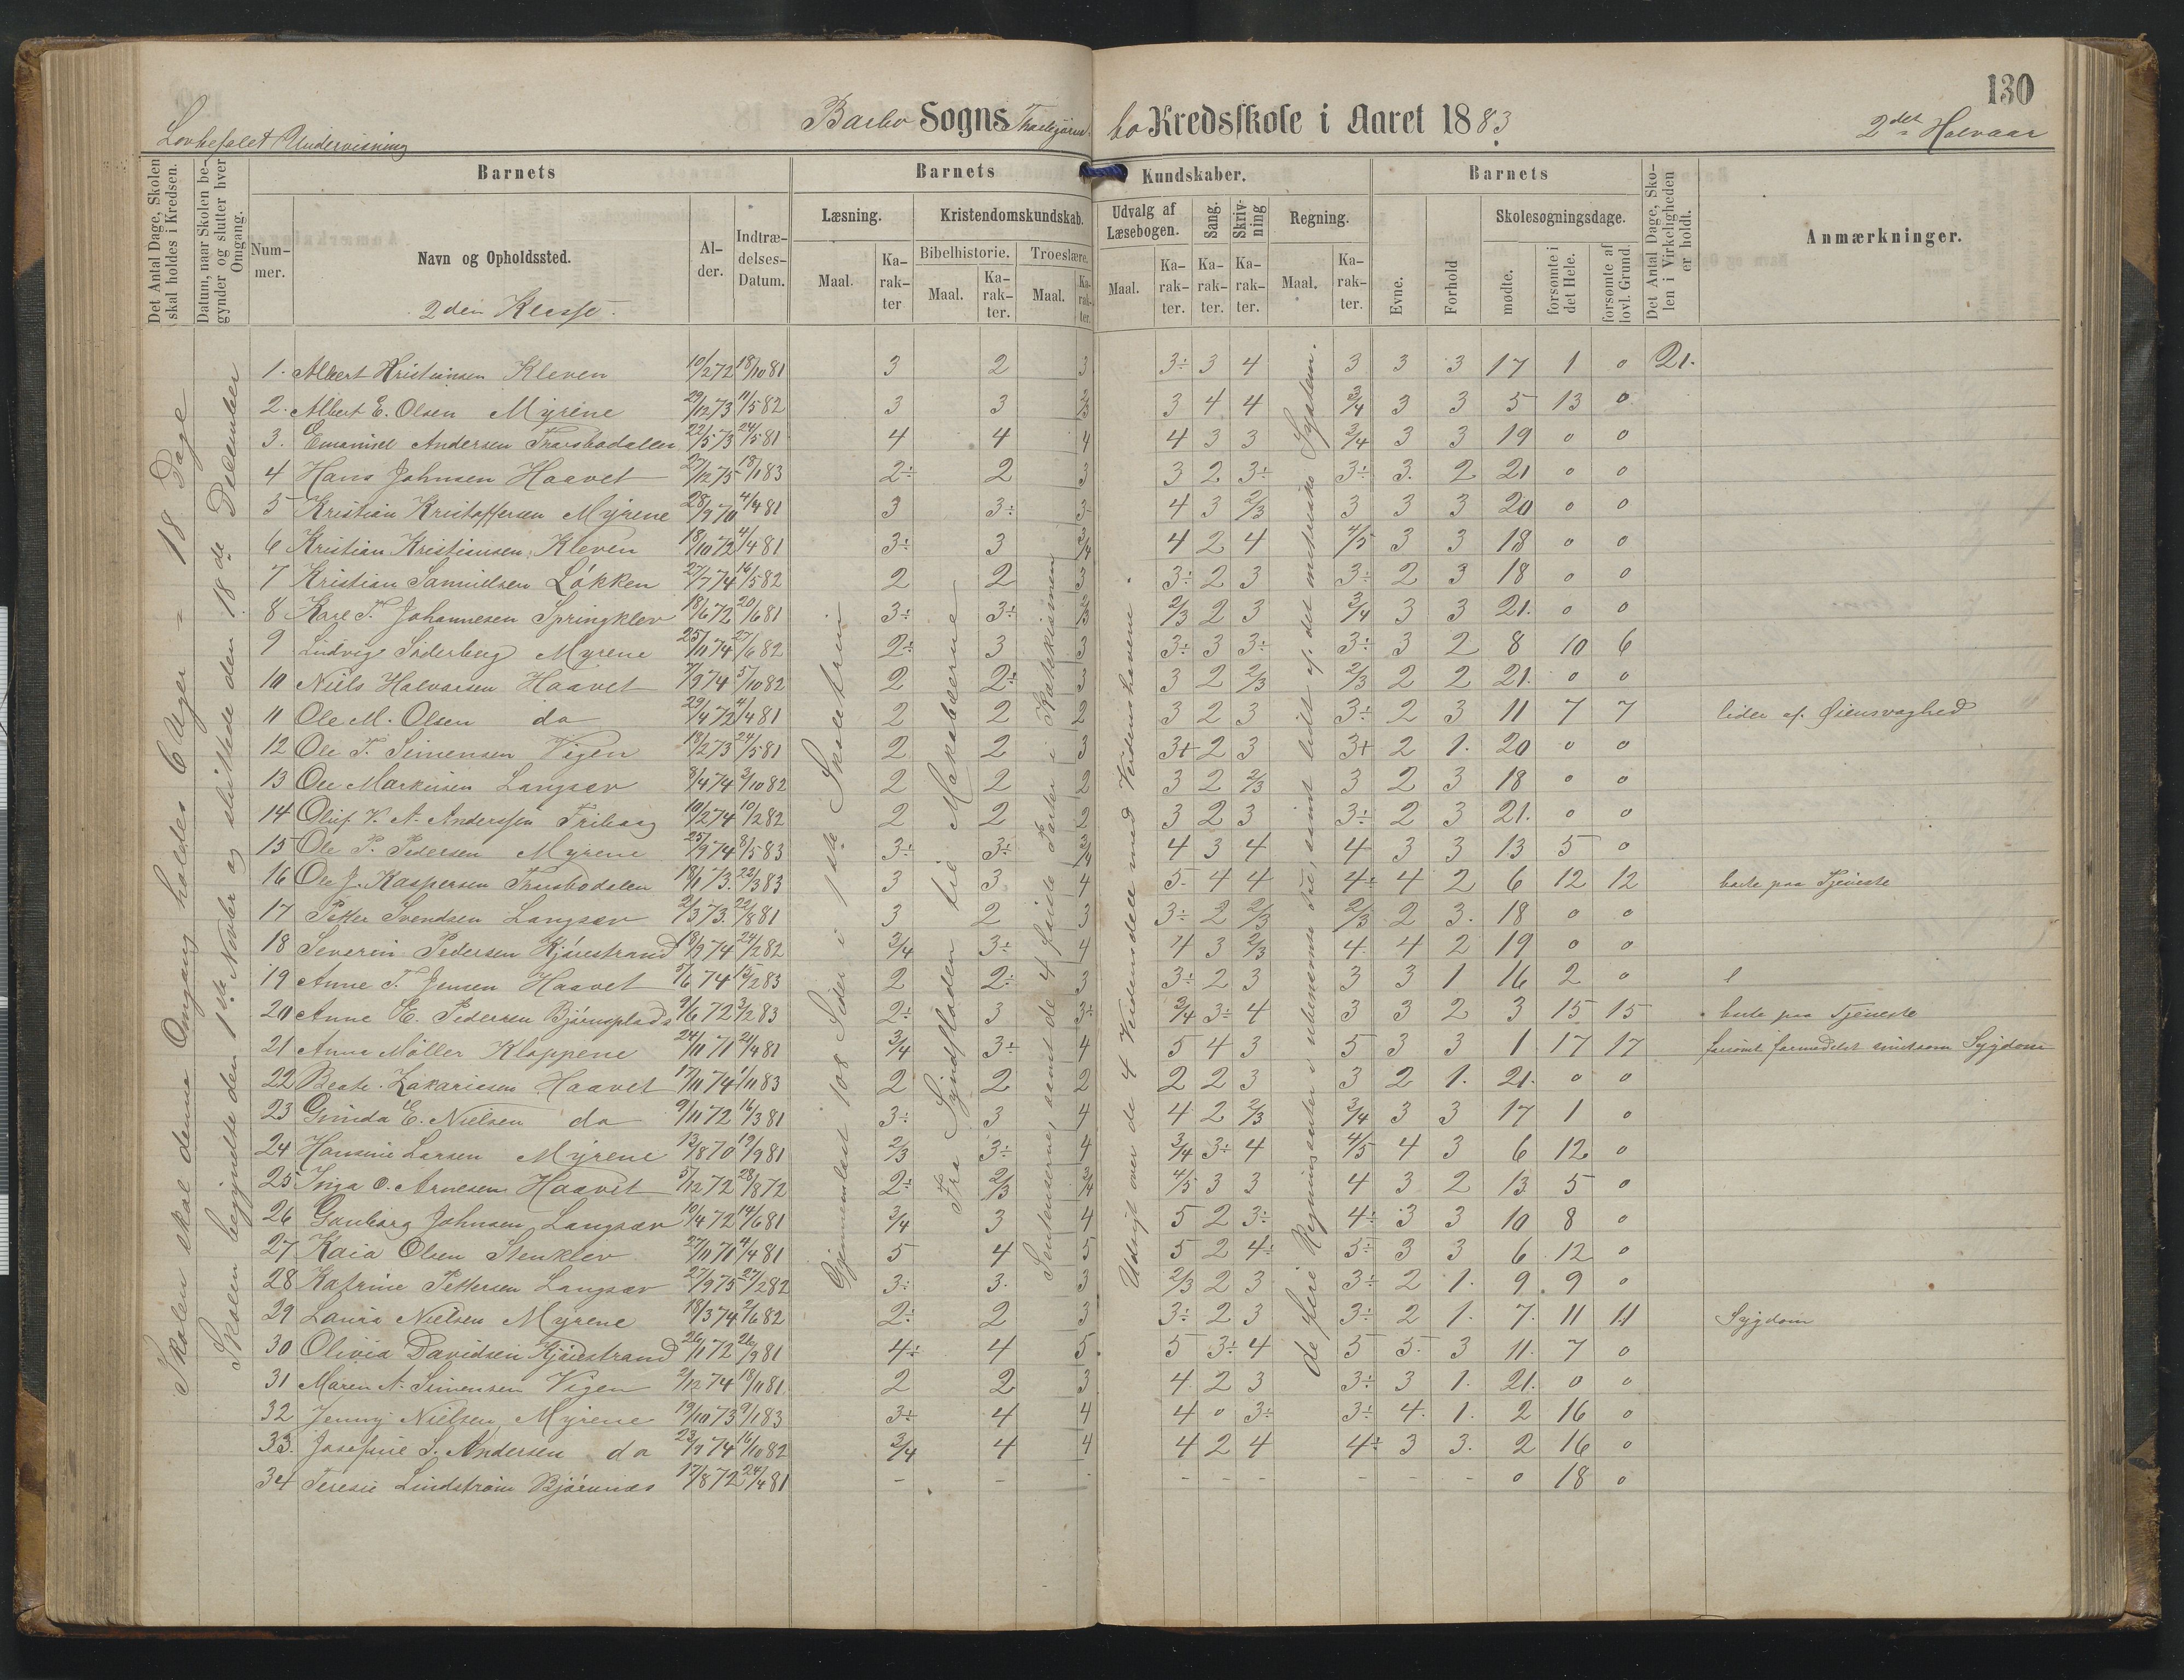 130
Lovbefalet Undervisning
Barbo Sogns Thorbjørns- bo Kredsskole i Aaret 1883
2det Halvaar
Det Antal Dage, Skolen skal holdes i Kredsen.
Datum, naar Skolen begynder og slutter hver Omgang.
Barnets
Barnets Kundskaber.
Barnets
Det Antal Dage, Skolen i Virkeligheden er holdt.
Anmærkninger.
Nummer.
Navn og Opholdssted.
Alder.
Indtrædelses-Datum.
Læsning.
Kristendomskundskab.
Bibelhistorie.
Troeslære.
Udvalg af Læsebogen.
Sang.
Skrivning
Regning.
Evne.
Forhold
Skolesøgningsdage.
mødte.
forsømte i det Hele.
forsømte af lovl. Grund.
Maal.
Karakter
Maal.
Karakter.
Maal.
Karakter.
Maal.
Karakter.
Karakter.
Karakter.
Maal.
Karakter.
2den Klasse.
Skolen skal denne Omgang holdes 6 Uger = 18 Dage
Skolen begyndte den 1ste Novbr og sluttede den 18de December
Gjennemlæst 108 Sider i 1ste Skoletrin
Fra Syndfloden til Makabæerne
Sentenserne, samt de 4 første Parter i Katekismen
Udsigt over de 4 Verdensdele med Verdenshavene.
de fire Regningsarter i ubenævnte Tal, samt lidt af det metriske System.
1. Albert Kristiansen Kleven 10/2 72 18/10 81 3 2 3 3÷ 3 4 3 3 3 17 1 0 21.
2. Albert E. Olsen Myrene 29/12 73 11/5 82 3 3 2/3 3 4 4 3/4 3 3 5 13 0
3. Emanuel Andersen Thorsbodalen 22/5 73 24/5 81 4 4 4 4 3 3 3/4 3 3 19 0 0
4 Hans Johnsen Haavet 27/12 75 18/1 83 2÷ 2 3 3 2 3÷ 3÷ 3. 2 21 0 0
5 Kristian Kristoffersen Myrene 28/9 70 4/4 81 3 3÷ 3÷ 4 3 2/3 3 3 3 20 0 0
6 Kristian Kristiansen Kleven 18/10 72 4/4 81 3÷ 3 3/4 4 2 4 4/5 3 3 18 0 0
7 Kristian Samuelsen Løkken 27/7 74 16/5 82 2 2 3 3÷ 2 3 3÷ 2 3 18 0 0
8 Karl T. Johannesen Springklev 18/6 72 20/6 81 3÷ 3÷ 2/3 2/3 2 3 3/4 3 3 21. 0 0
9 Ludvig Søderberg Myrene 25/11 74 27/6 82 2÷ 3 3 3÷ 3 3÷ 3÷ 3 2 8 10 6
10 Niels Halvorsen Haavet 7/9 74 5/10 82 2 2÷ 3 3 2 2/3 2/3 2 2 21. 0 0
11 Ole M. Olsen do 29/4 72 4/4 81 2 2 2 3 2 3 3÷ 2 3 11 7 7 lider af Øiensvaghed
12 Ole T. Simensen Vigen 18/2 73 24/5 81 2 2 3 3+ 2 3 3+ 2 1. 20 0 0
13 Ole Markusen Langsæv 8/4 74 3/10 82 2 2 2 3 2 2/3 3 2 3 18 0 0
14 Oluf K. A. Anderssen Friborg 10/2 74 10/2 82 2 2 2 3 2 3 3÷ 2 3 21. 0 0
15 Ole P. Pedersen Myrene 25/9 74 8/5 83 3÷ 3÷ 3/4 4 3 4 4 3 3 13 5 0
16 Ole J. Kaspersen Thorsbodalen 18/1 73. 22/3 83 3 3 4 5. 4 4 4÷ 4 2 6 12 12 borte paa Tjeneste
17 Petter Svendsen Langsæv 2/3 73. 22/8 81 3 2 3 3÷ 2 2/3 2/3 2 3. 18 0 0
18 Severin Pedersen Kjørestrand 18/9 74 24/2 82 3/4 3÷ 4 4 3 2/3 4. 4 2 19 0 0
19 Anne T. Jensen Haavet 5/6 74 15/2 83 2 2÷ 3 3÷ 2 3 3 3 1 16 2 0
20 Anne E. Pedersen Bjørnsplads 9/6 72 3/2 83 2÷ 3 3÷ 3/4 3÷ 4 3 3 2 3 15 15 borte paa Tjeneste
21 Anna Møller Kloppene 24/11 71 21/4 81 3/4 3÷ 4 5 4 3 5 3 3 1 17 17 forsømt formedelst smitsom Sygdom
22 Beate Zakariesen Haavet 17/11 74 1/11 83 2 2 2 2 2 3 3 2 1. 21. 0 0
23 Gunda E. Nielsen do 9/11 72 16/3 81 3÷ 3 4 4 2 2/3 3/4 3 3 17 1 0
24 Hansine Larsen Myrene 13/8 70 19/9 81 2/3 3÷ 4 3/4 3÷ 4 4/5 4 3 6 12 0
25 Inga O. Arnesen Haavet 5/12 72 28/8 72 2÷ 2/3 3/4 4/5 3 3 4 3 2 13 5 0
26 Gunborg Johnsen Langsæv 10/4 72 14/6 81 3/4 3 4 5 2 3÷ 4÷ 3 3 10 8 0
27 Kaia Olsen Stenklev 27/11 71 4/4 81 5 4 5 5 2 4÷ 5÷ 3 3 6 12 0
28 Katrine Pettersen Langsæv 27/9 75 27/2 82 3÷ 3. 3 2/3 2 3 3÷ 2 1. 9 9 0
29 Laura Nielsen Myrene 18/3 74 2/6 82 2÷ 2 3 3÷ 2 3 3÷ 2 1. 7. 11 11 Sygdom
30 Olivia Davidsen Kjørestrand 26/11 72 26/9 81 4÷ 4 5 5 3÷ 4 5 5. 3 11. 7 0
31 Maren A. Simensen Vigen 2/12 74 18/11 81 2 2 3 4 2 3 3÷ 3 1. 21. 0 0
32 Jenny Nielsen Myrene 19/10 73 9/1 83 3÷ 4 4 4 0 3÷ 3÷ 4. 1. 2 16 0
33. Josefine S. Andersen do 23/9 74 16/10 82 3/4 4 4 4 2 4 4÷ 3 3. 2 16 0
34 Teresie Lindstrøm Bjørnnæs 17/8 72 24/4 81 - - - - - - - - - 0 18 0